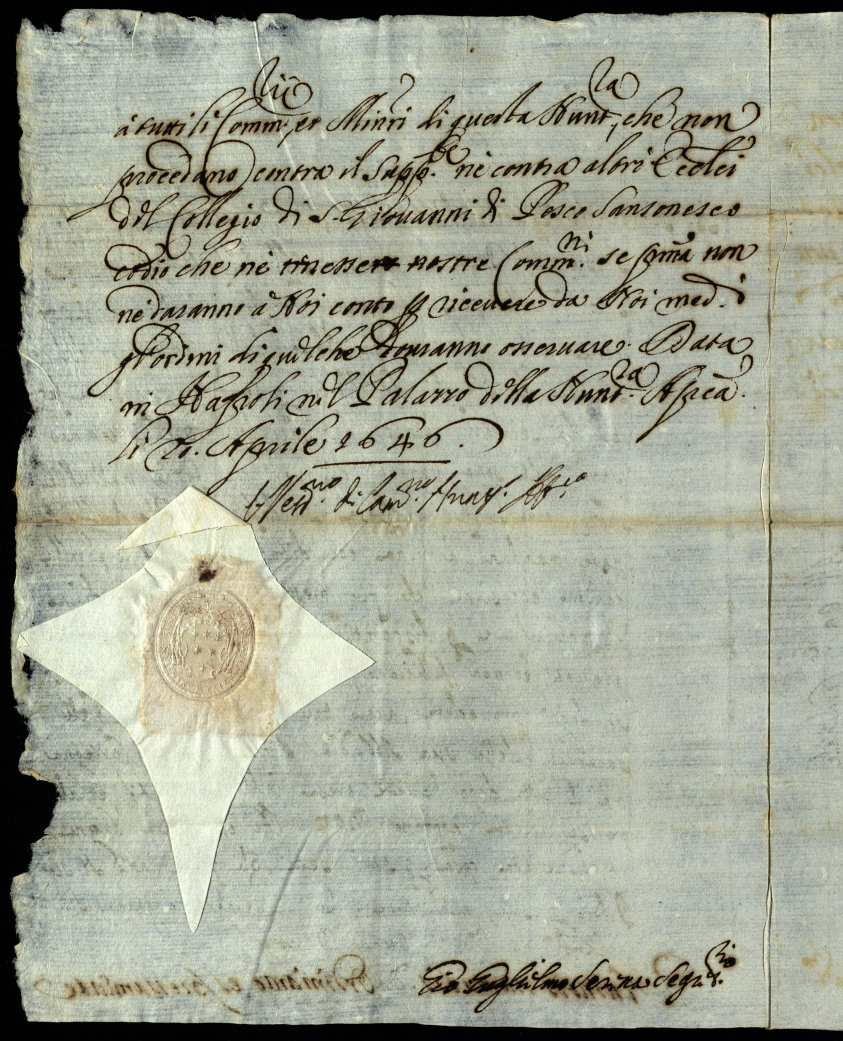 à tutti li Comm.rii et Min.ri di questa Nunt.ra, che non
procedano contra il Supp.te ne contra altri Eccl.ci
del Collegio di S. Giovanni di Pesco Sansonesco
che ne tenessero nostre Comm.ni se prima non
ne daranno à Noi conto per ricevere da Noi med.i
gl'ordini di quel che dovranno osservare. Data
in Napoli nel Palazzo della Nunt.ra Ap.ca
li Aprile 1646.
Gio. Guglielmo Segr.rio